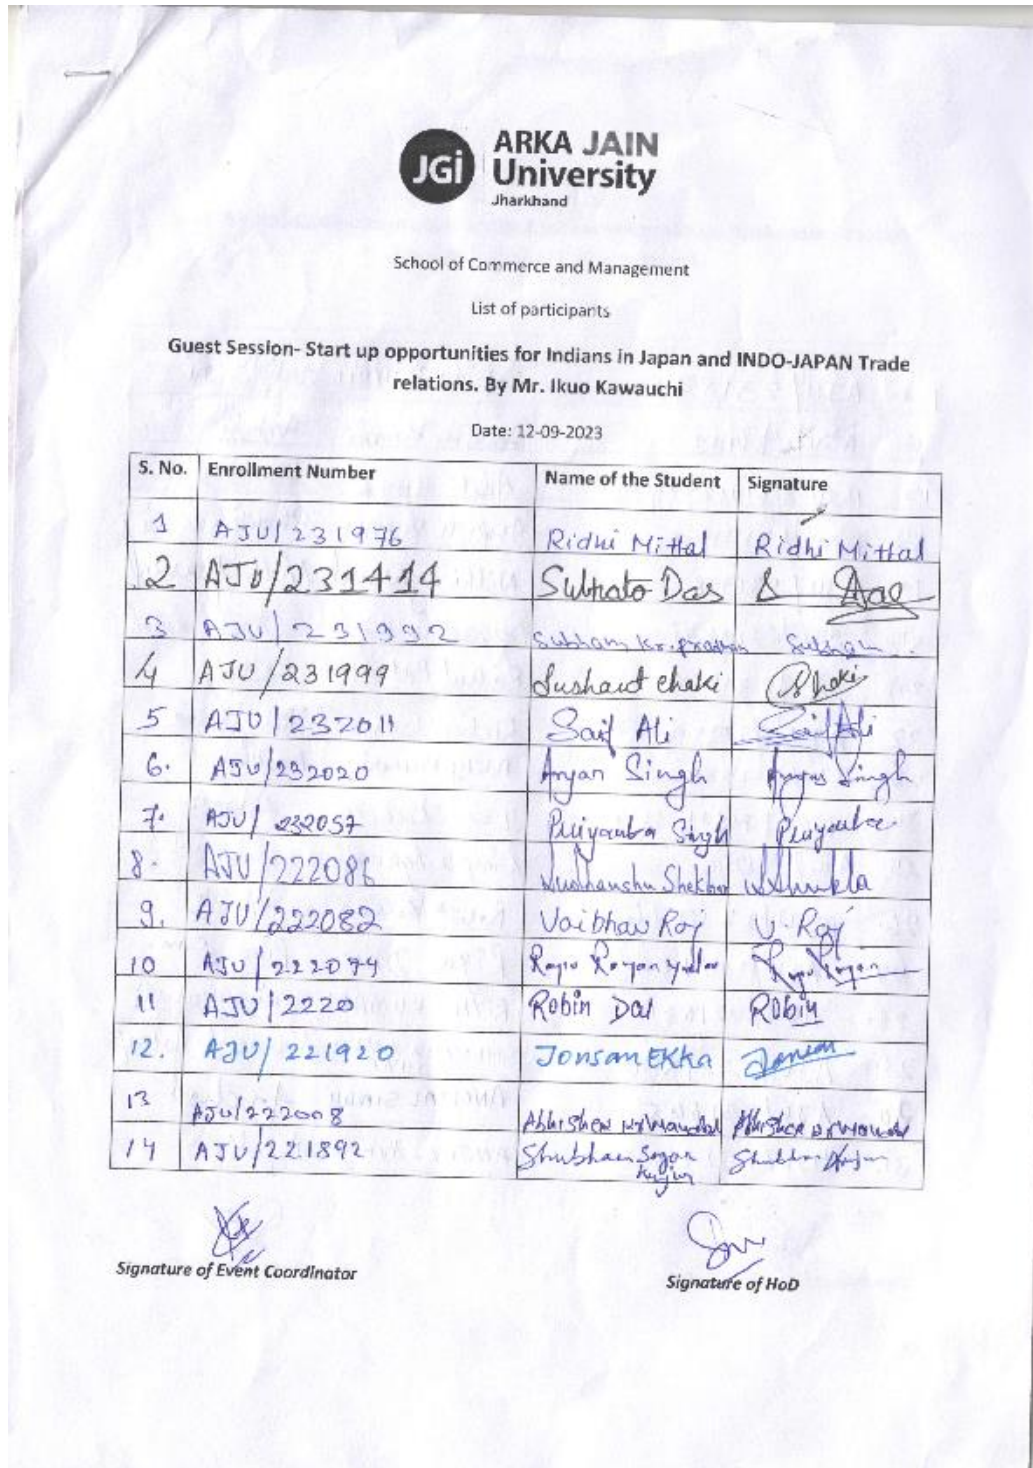 JGi
ARKA JAIN
University
Jharkhand
School of Commerce and Management
List of participants
Guest Session- Start up opportunities for Indians in Japan and INDO-JAPAN Trade
relations. By Mr. Ikuo Kawauchi
Date: 12-09-2023
S. No. Enrollment Number Name of the Student Signature
1 AJU/231976 Ridhi Mittal Ridhi Mittal
2 AJU/231414 Subhato Das
3 AJU/231992 Subham Kr. Subham
4 AJU/231999 Sushant chaki Chaki
5 AJU/232011 Saif Ali Saif Ali
6. AJU/232020 Aryan Singh Aryan Singh
7. AJU/232057 Priyanka Singh Priyanka
8. AJU/222086 Sudhanshu Shekhar
9. AJU/222082 Vaibhav Raj V. Raj
10 AJU/222074
11 AJU/2220 Robin Das Robin
12. AJU/221920 Jonsan EKKa
13 AJU/222008 Abhishek
14 AJU/221892 Shubham
Signature of Event Coordinator
Signature of HoD